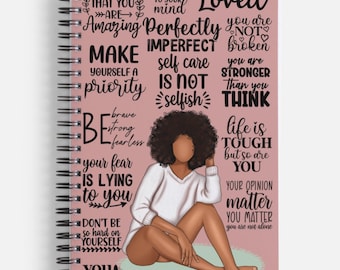 THAT YOU
ARE
Amazing
TO YOUR
mind
Loved
MAKE
YOURSELF A
priority
Perfectly
IMPERFECT
self care
IS NOT
selfish
you are
NOT
broken
you are
STRONGER
than you
THINK
BE brave
strong
fearless
life is
TOUGH
but so are
YOU
your fear
IS LYING
TO YOU
YOUR OPINION
matter
YOU MATTER
you are not alone
DON'T BE
so hard on
YOURSELF
YOUR